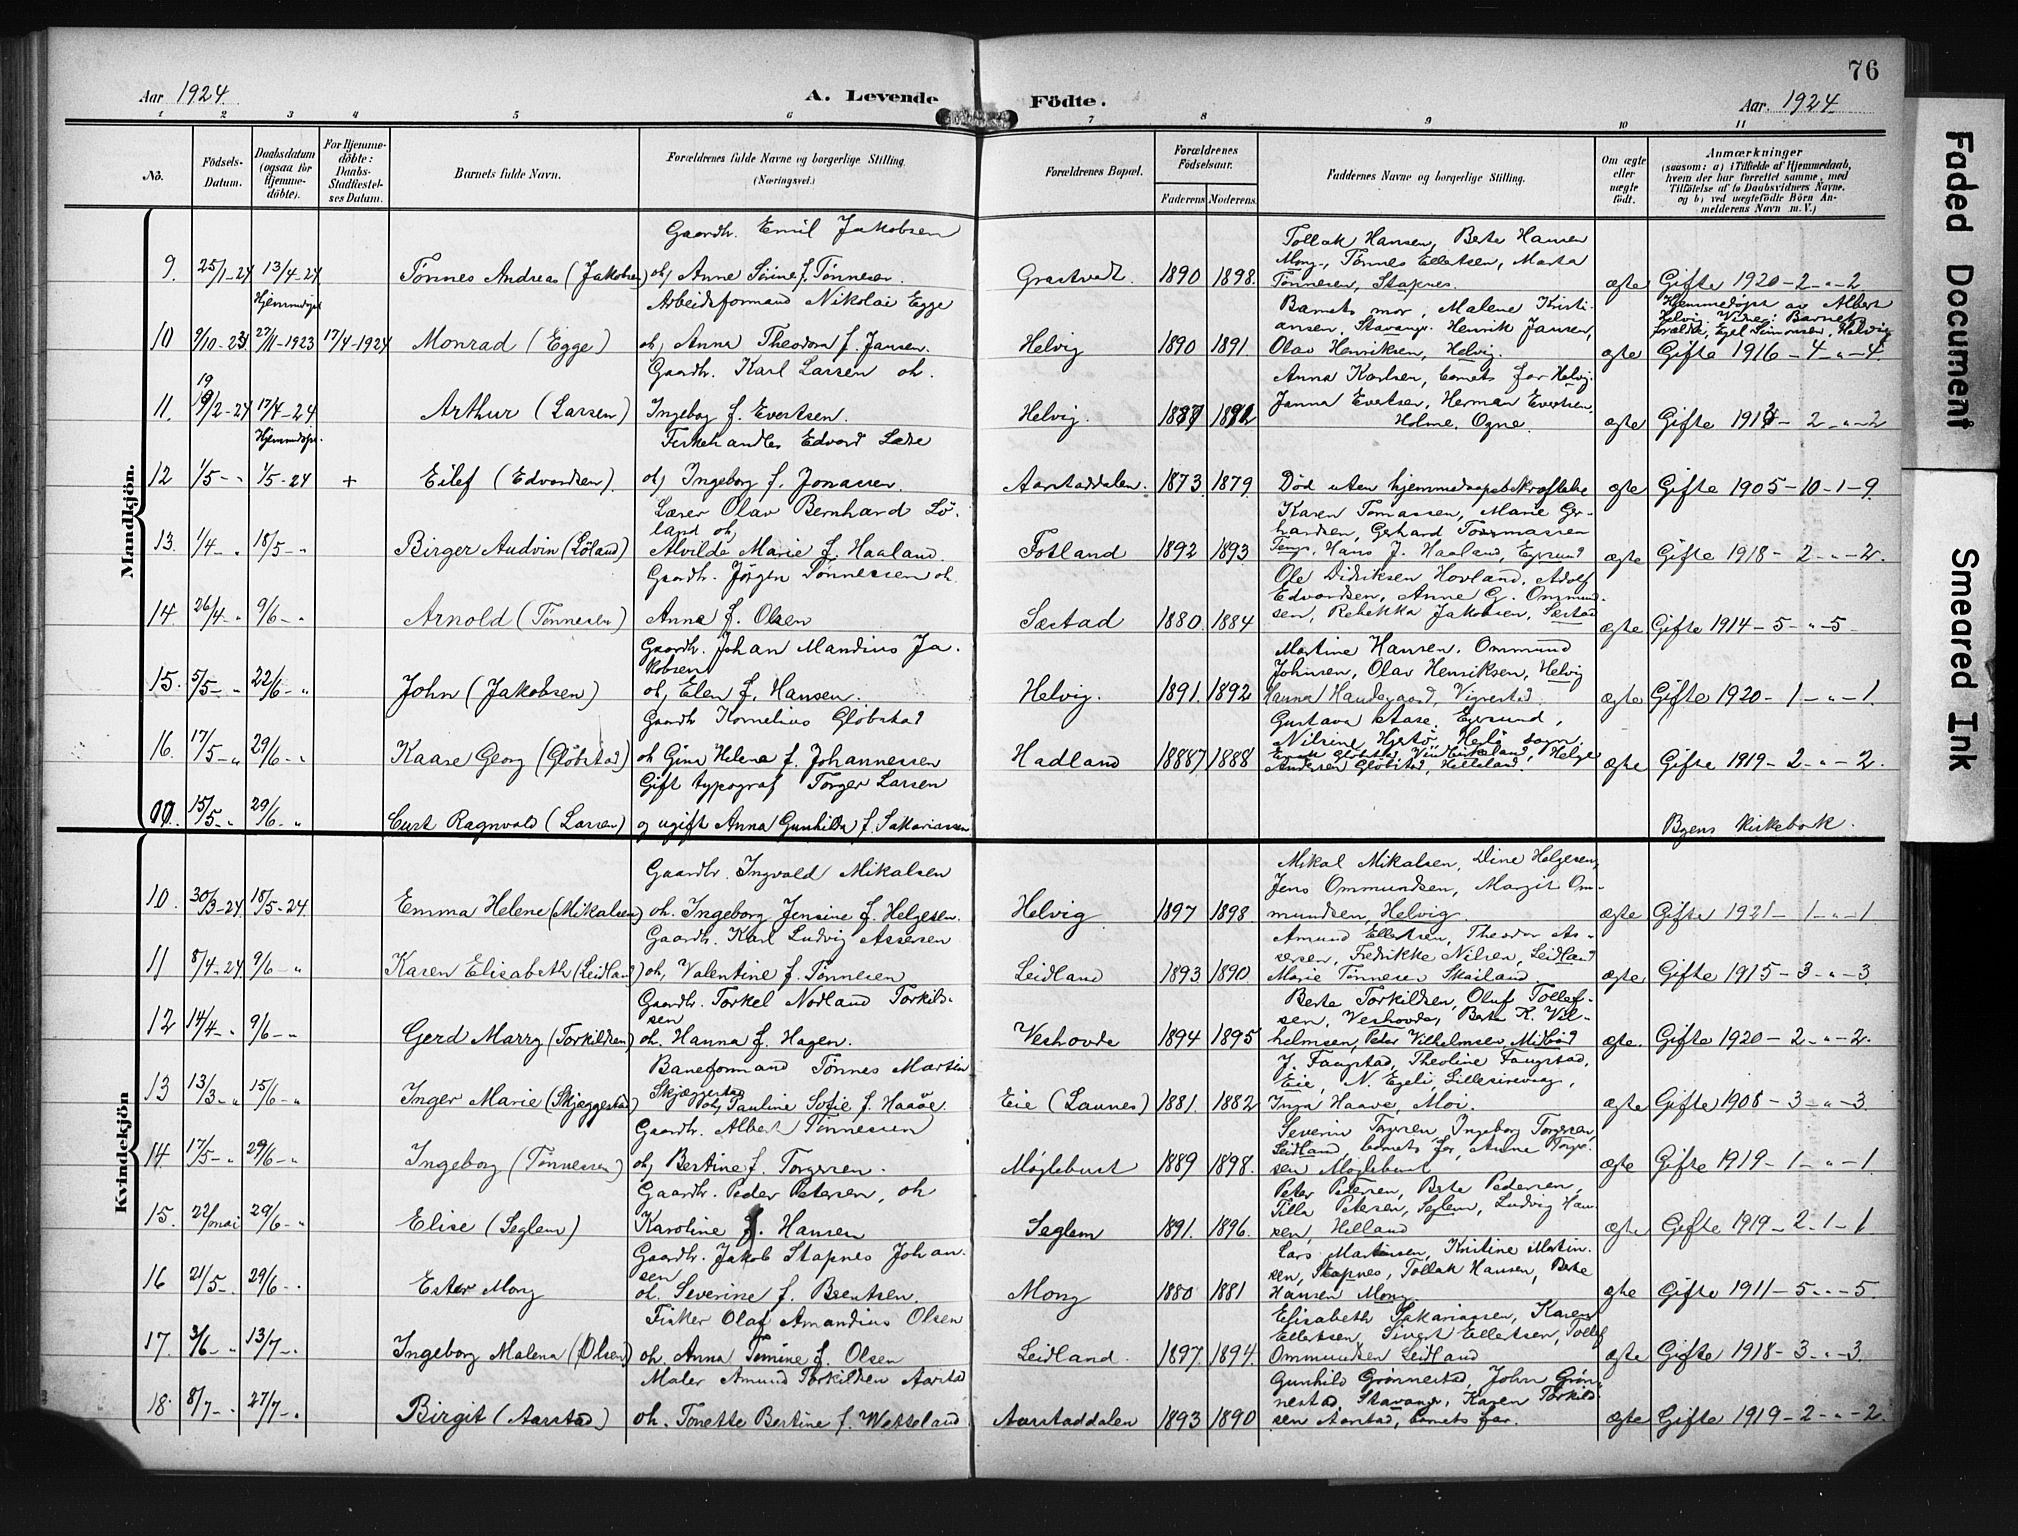 76
Aar 1924.
A. Levende Födte.
Aar. 1924
1 2 3 4 5 6 7 8 9 10 11
No.
Födsels-Datum.
Daabsdatum (ogsaa for Hjemme-döbte).
For Hjemme-döbte: Daabs-Stadfæstel-ses Datum.
Barnets fulde Navn.
Forældrenes fulde Navne og borgerlige Stilling.
(Næringsvei.)
Forældrenes Bopæl.
Forældrenes Födselsaar.
Faderens Moderens.
Faddernes Navne og borgerlige Stilling.
Om ægte eller uægte födt.
Anmærkninger
(saasom: a) i Tilfælde af Hjemmedaab, hvem der har forrettet samme, med Tilföielse af to Daabsvidners Navne. og b) ved uægtefödte Börn An-melderens Navn m. V.)
Mandkjön.
9. 25/1-24 13/4-24 Tønnes Andreas (Jakobsen) Gaardbr. Emil Jakobsen oh Anne Serine f. Tønnesen Grastveit. 1890 1898. Tollak Hansen, Berte Hansen Mong, Tønnes Elletsen, Marta Tønnesen, Stapnes. ægte Gifte 1920-2-"-2
10 9/10-23 Hjemmedøpt 27/11-1923 17/4-1924 Monrad (Egge) Arbeidsformand Nikolai Egge oh Anna Theodora f. Jansen. Helvig 1890 1891. Barnets mor, Malene Kristi-ansen, Stavanger. Henrik Jansen, Olav Henriksen, Helvig. ægte Hjemmedøpt av Albert Helvig. Vidner: Barnets forældre, Egel Simonsen, Helvig Gifte 1916-4-"-4
11. 19/2-24 17/4-24 Arthur (Larsen) Gaardbr. Karl Larsen oh. Ingeborg f. Evertsen. Helvig. Anna Karlsen, barnets far Helvig. Janna Evertsen, Herman Evertsen, Holme, Ogne. ægte Gifte 2-"-2
12 1/5-" Hjemmedøpt. 1/5-24 + Eilef (Edvardsen). Fiskehandler Edvard oh Ingeborg f. Jonassen. Aarstaddalen. 1873. 1879. Død uten hjemmedaapsbekræftelse ægte Gifte 1905-10-1-9
13. 1/4-" 18/5-" Birger Audvin (Løland) Lærer Olav Bernhard Lö-land oh Alvilde Marie f. Haaland. Fotland 1892 1893 Karen Tomassen, Marie Ger-hardsen, Gerhard Tommassen Tengs, Hans J. Haaland, Egersund ægte Gifte 1918-2-"-2.
14 26/4-" 9/6-" Arnold (Tønnesen) Gaardbr. Jörgen Tønnessen oh. Anne f. Olsen Sæstad 1880. 1884 Ole Didriksen Hovland, Adolf Edvardsen, Anne G. Ommund-sen, Rebekka Jakobsen, Sæstad ægte Gifte 1914-5-"-5
15. 5/5-" 22/6-" John (Jakobsen) Gaardbr. Johan Mandius Ja-kobsen oh Elen f. Hansen. Helvig. 1891. 1892 Martine Hansen, Ommund Johnsen, Olav Henriksen, Helvig Hanna Haudsgaard, Vigrestad. ægte Gifte 1920-1-"-1.
16. 17/5-" 29/6-" Kaare Georg (Gløbstad) Gaardb. Kornelius Gløbstad oh Gina Helene f. Johannessen Hadland 1887 1888 Gustava Aase, Egersund, Nilsine Hjertö, Helö sogn, Gløbstad, Birkeland, Helge Andersen Gløbstad, Helleland. ægte Gifte 1919-2-"-2.
15/5-" 29/6-" Curt Ragnvald (Larsen) Gift typograf Torger Larsen og ugift Anna Gunhilda f. Sakariassen Byens kirkebok.
Kvindekjön
10. 30/3-24 18/5-24 Emma Helene (Mikalsen) Gaardbr. Ingvald Mikalsen oh. Ingeborg Jensine f. Helgesen. Helvig 1897 1898. Mikal Mikalsen, Dine Helgesen, Jens Ommundsen, Margit Om-mundsen, Helvig. ægte Gifte 1921-1-"-1
11 8/4-24 9/6-" Karen Elisabeth (Leidland) Gaardb. Karl Ludvig Assersen oh, Valentine f. Tønnesen Leidland 1893 1890. Amund Elletsen, Theodor As-sersen, Fredrikke Nilsen, Leidland Marie Tønnesen Skailand ægte Gifte 1915-3-"-3.
12 14/4-" 9/6-" Gerd Marry (Torkildsen) Gaardbr. Torkel Nodland Torkild-sen oh. Hanna f. Hagen. Veshovde 1894 1895 Berte Torkildsen, Oluf Tollef-sen, Veshovde, Berte K. Vil-helmsen, Peder Vilhelmsen, Midbød ægte. Gifte 1920-2-"-2.
13 13/3-" 15/6-" Inger Marie (Skjæggestad) Baneformand Tønnes Martin Skjæggestad oh Pauline Sofie f. Haaöe. Eie (Launes) 1881. 1882 J. Faugstad, Theoline Faugstad, Eie, N. Egeli, Lillesirevaag, Inga Haave, Moi. ægte Gifte 1908-3-"-3.
14. 17/5-" 29/6-" Ingeborg (Tønnessen) Gaardbr. Albert Tønnessen oh Bertine f. Torgersen. Møglebust 1889 1898. Severin Torgersen, Ingeborg Torgersen, Leidland barnets far, Anne Torger-sen Møglebust ægte Gifte 1919-1-"-1
15. 22/mai 29/6-" Elise (Seglem) Gaardbr. Peder Petersen, oh Karoline f. Hansen Seglem 1891. 1896. Peter Petersen, Berte Pedersen, Tilla Petersen, Seglem, Ludvig Han-sen, Helland ægte Gifte 1919-2-1-1
16 21/5-. 29/6-. Ester Mong Gaardbr. Jakob Stapnes Johan-sen oh. Severine f. Berntsen. Mong 1880 1881 Lars Martinsen, Kristine Martin-sen, Stapnes, Tollak Hansen, Berte Hansen Mong. ægte Gifte 1911-5-"-5.
17. 3/6-" 13/7-. Ingeborg Malena (Olsen) Fisker Olaf Amandius Olsen oh. Anna Tomine f. Olsen Leidland. 1897. 1894 Elisabeth Sakariassen, Karen Elletsen, Sivert Elletsen, Tollef Ommundsen Leidland ægte Gifte 1918-3-"-3.
18. 8/7-. 27/7-. Birgit (Aarstad) Maler Amund Torkildsen Aarstad oh. Tonette Bertine f. Wetteland. Aarstaddalen 1893 1890 Gunhild Grønnestad, John Grøn-nestad, Stavanger, Karen Torkild-sen Aarstad, barnets far. ægte Gifte 1919-2-"-2.
Faded Document
Smeared Ink